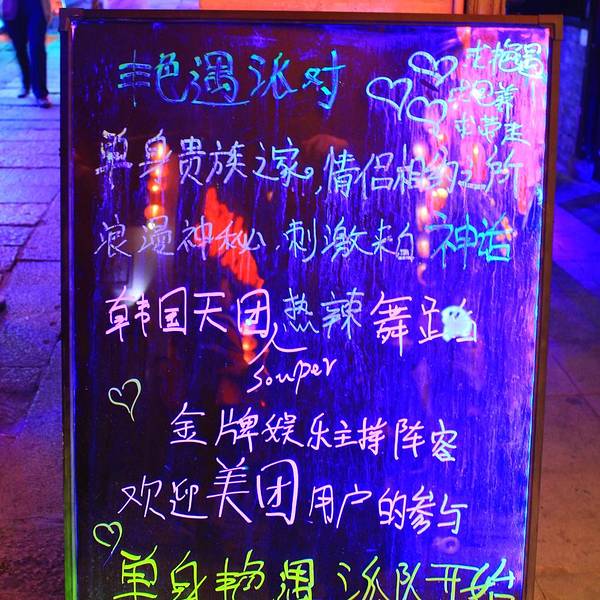 艳遇派对
求艳遇
求包养
求带走
单身贵族之家,情侣相约之所
浪漫神秘,刺激来自神话
韩国天团热辣舞
人
souper
金牌娱乐主持阵容
欢迎美团用户的参与
单身艳遇派队开始